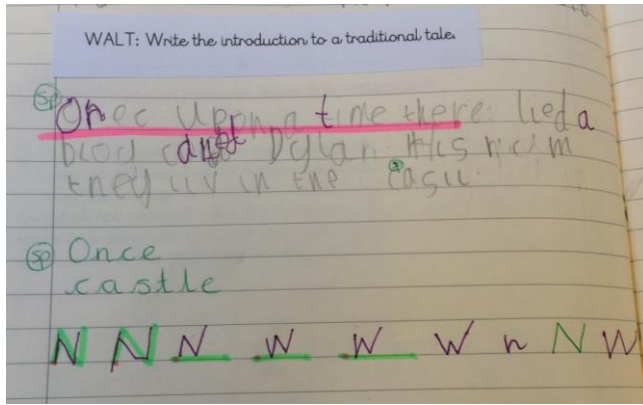 WALT: Write the introduction to a traditional tale.
sp
Onec Upon a time there lied a
Dylan His
they liv in the casll.
sp Once
castle
N N N W W W n N W